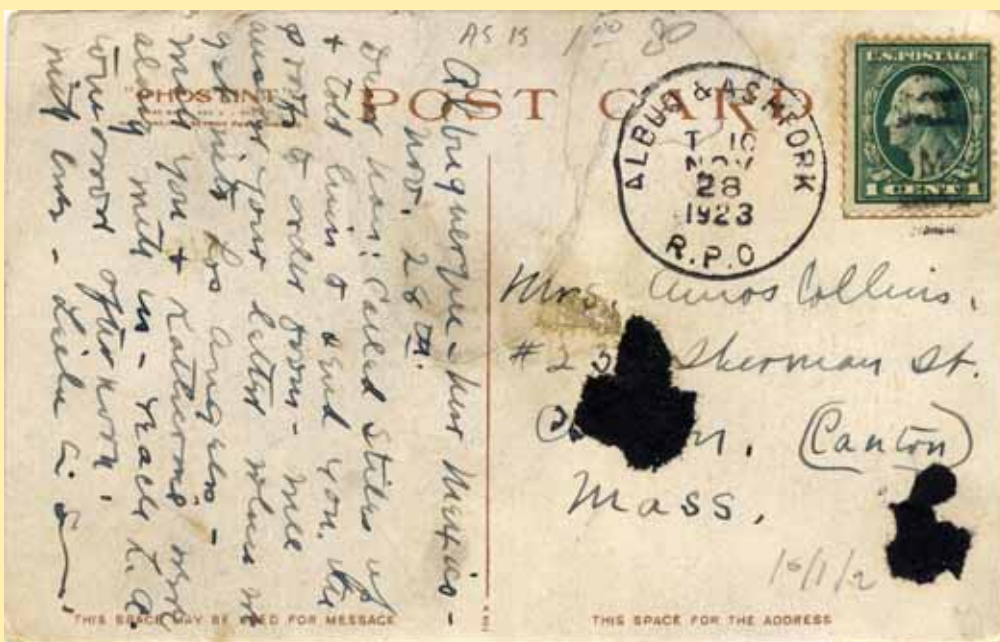 AS IS 1.00 80
"PHOSTINT"
POST CARD
U.S. POSTAGE
1 CENT 1
ALBUQ & ASH FORK
T 10
NOV
28
1923
R.P.O
Albuquerque - New Mexico -
Nov. 28th.
Called Stiles up
& told him to send you the
to order from - will
answer your letter when we
get into Los Angeles -
you & Katherine were
along with us - reach L.A.
tomorrow afternoon.
Mrs. Amos Collins,
#23 Sherman St.
(Canton)
Mass.
16/1/2
THIS SPACE MAY BE USED FOR MESSAGE
THIS SPACE FOR THE ADDRESS